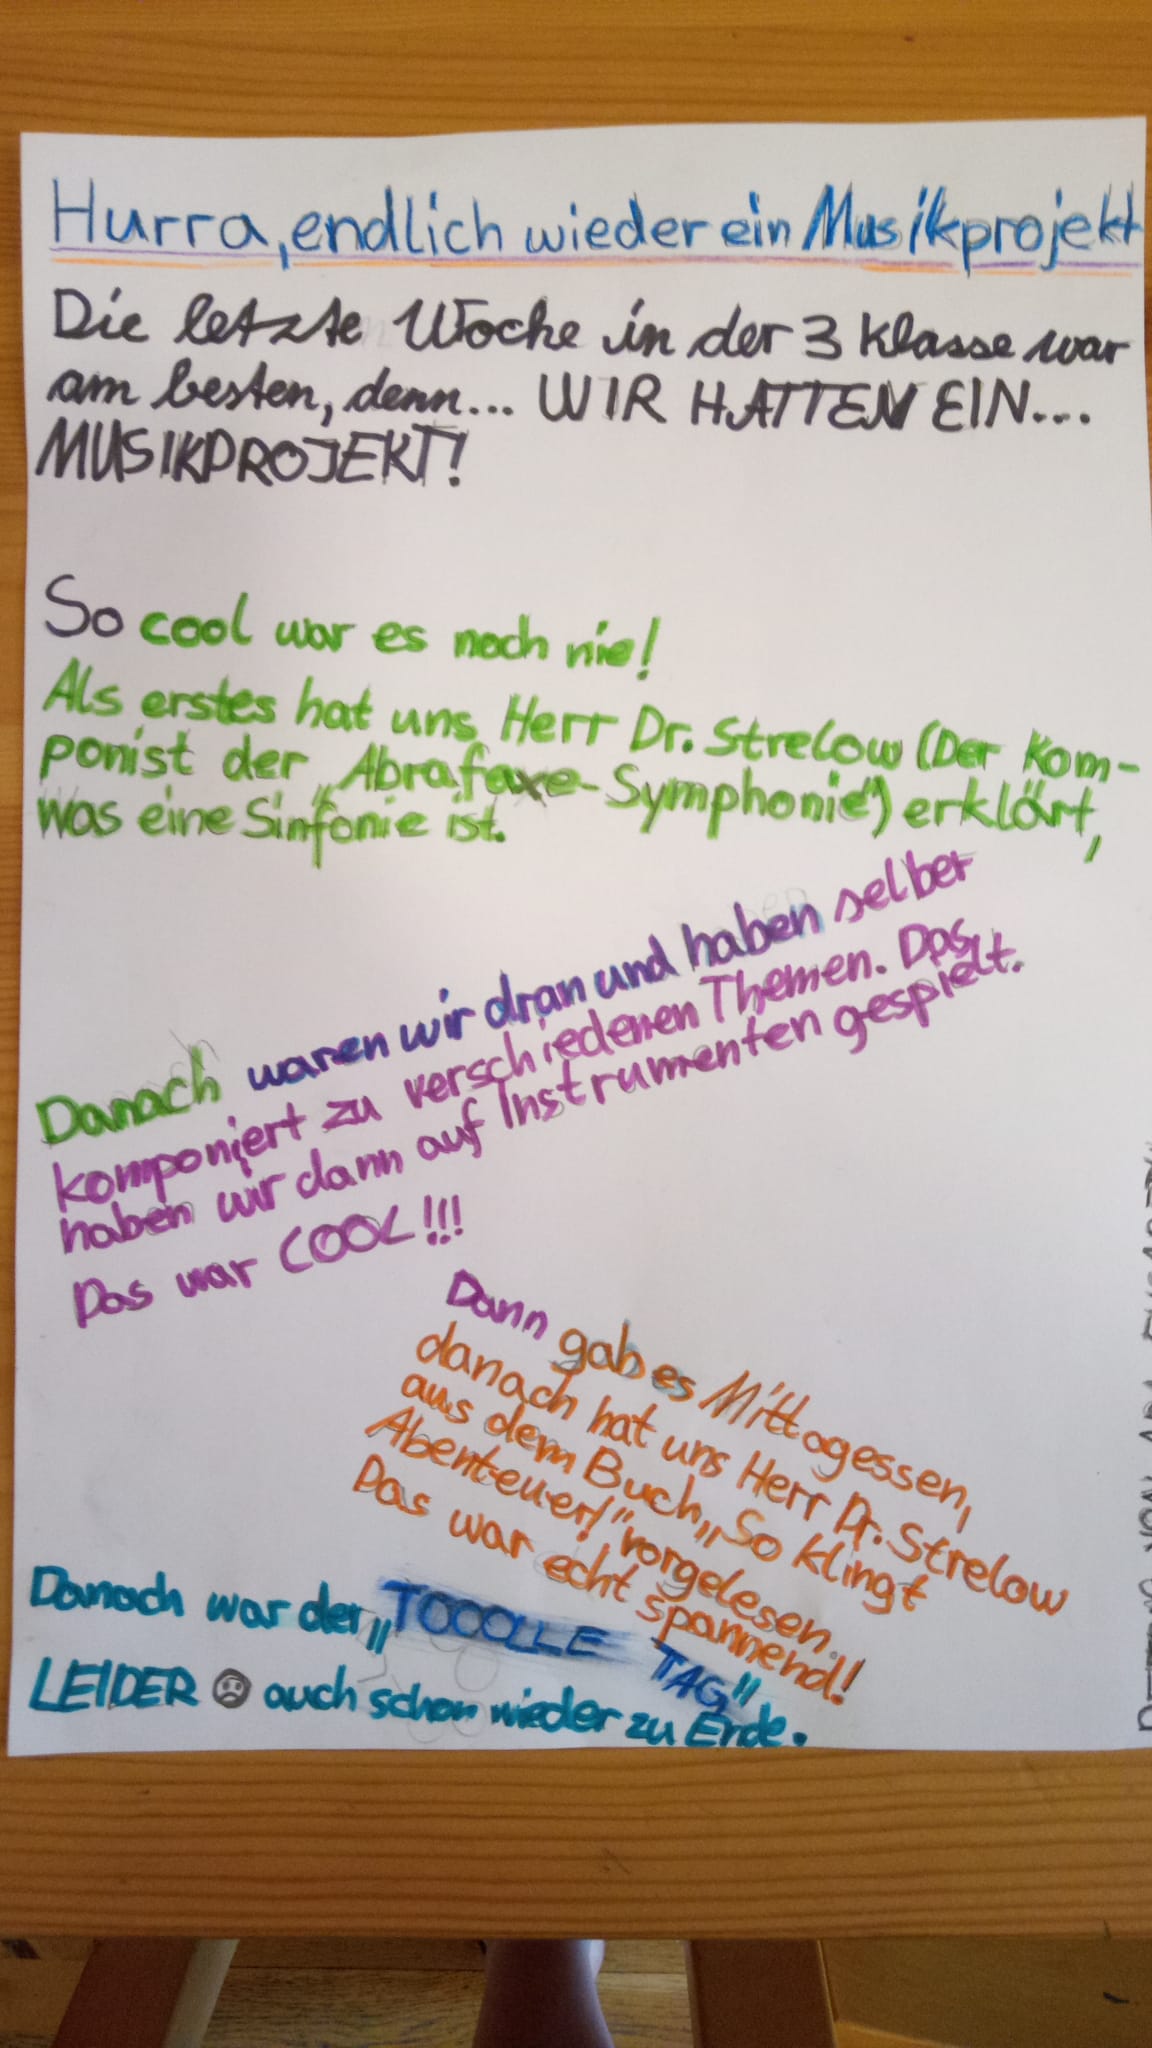 Hurra, endlich wieder ein Musikprojekt
Die letzte Woche in der 3 Klasse war
am besten, denn... WIR HATTEN EIN...
MUSIKPROJEKT!
So cool war es noch nie!
Als erstes hat uns Herr Dr. Strelow (Der Kom-
ponist der „Abrafaxe-Symphonie") erklärt,
was eine Sinfonie ist.
Danach waren wir dran und haben selber
komponiert zu verschiedenen Themen. Das
haben wir dann auf Instrumenten gespielt.
Das war COOL!!!
Dann gab es Mittagessen,
danach hat uns Herr Dr. Strelow
aus dem Buch „So klingt
Abenteuer!" vorgelesen.
Das war echt spannend!
Danach war der „TOOOLLE TAG"
LEIDER auch schon wieder zu Ende.